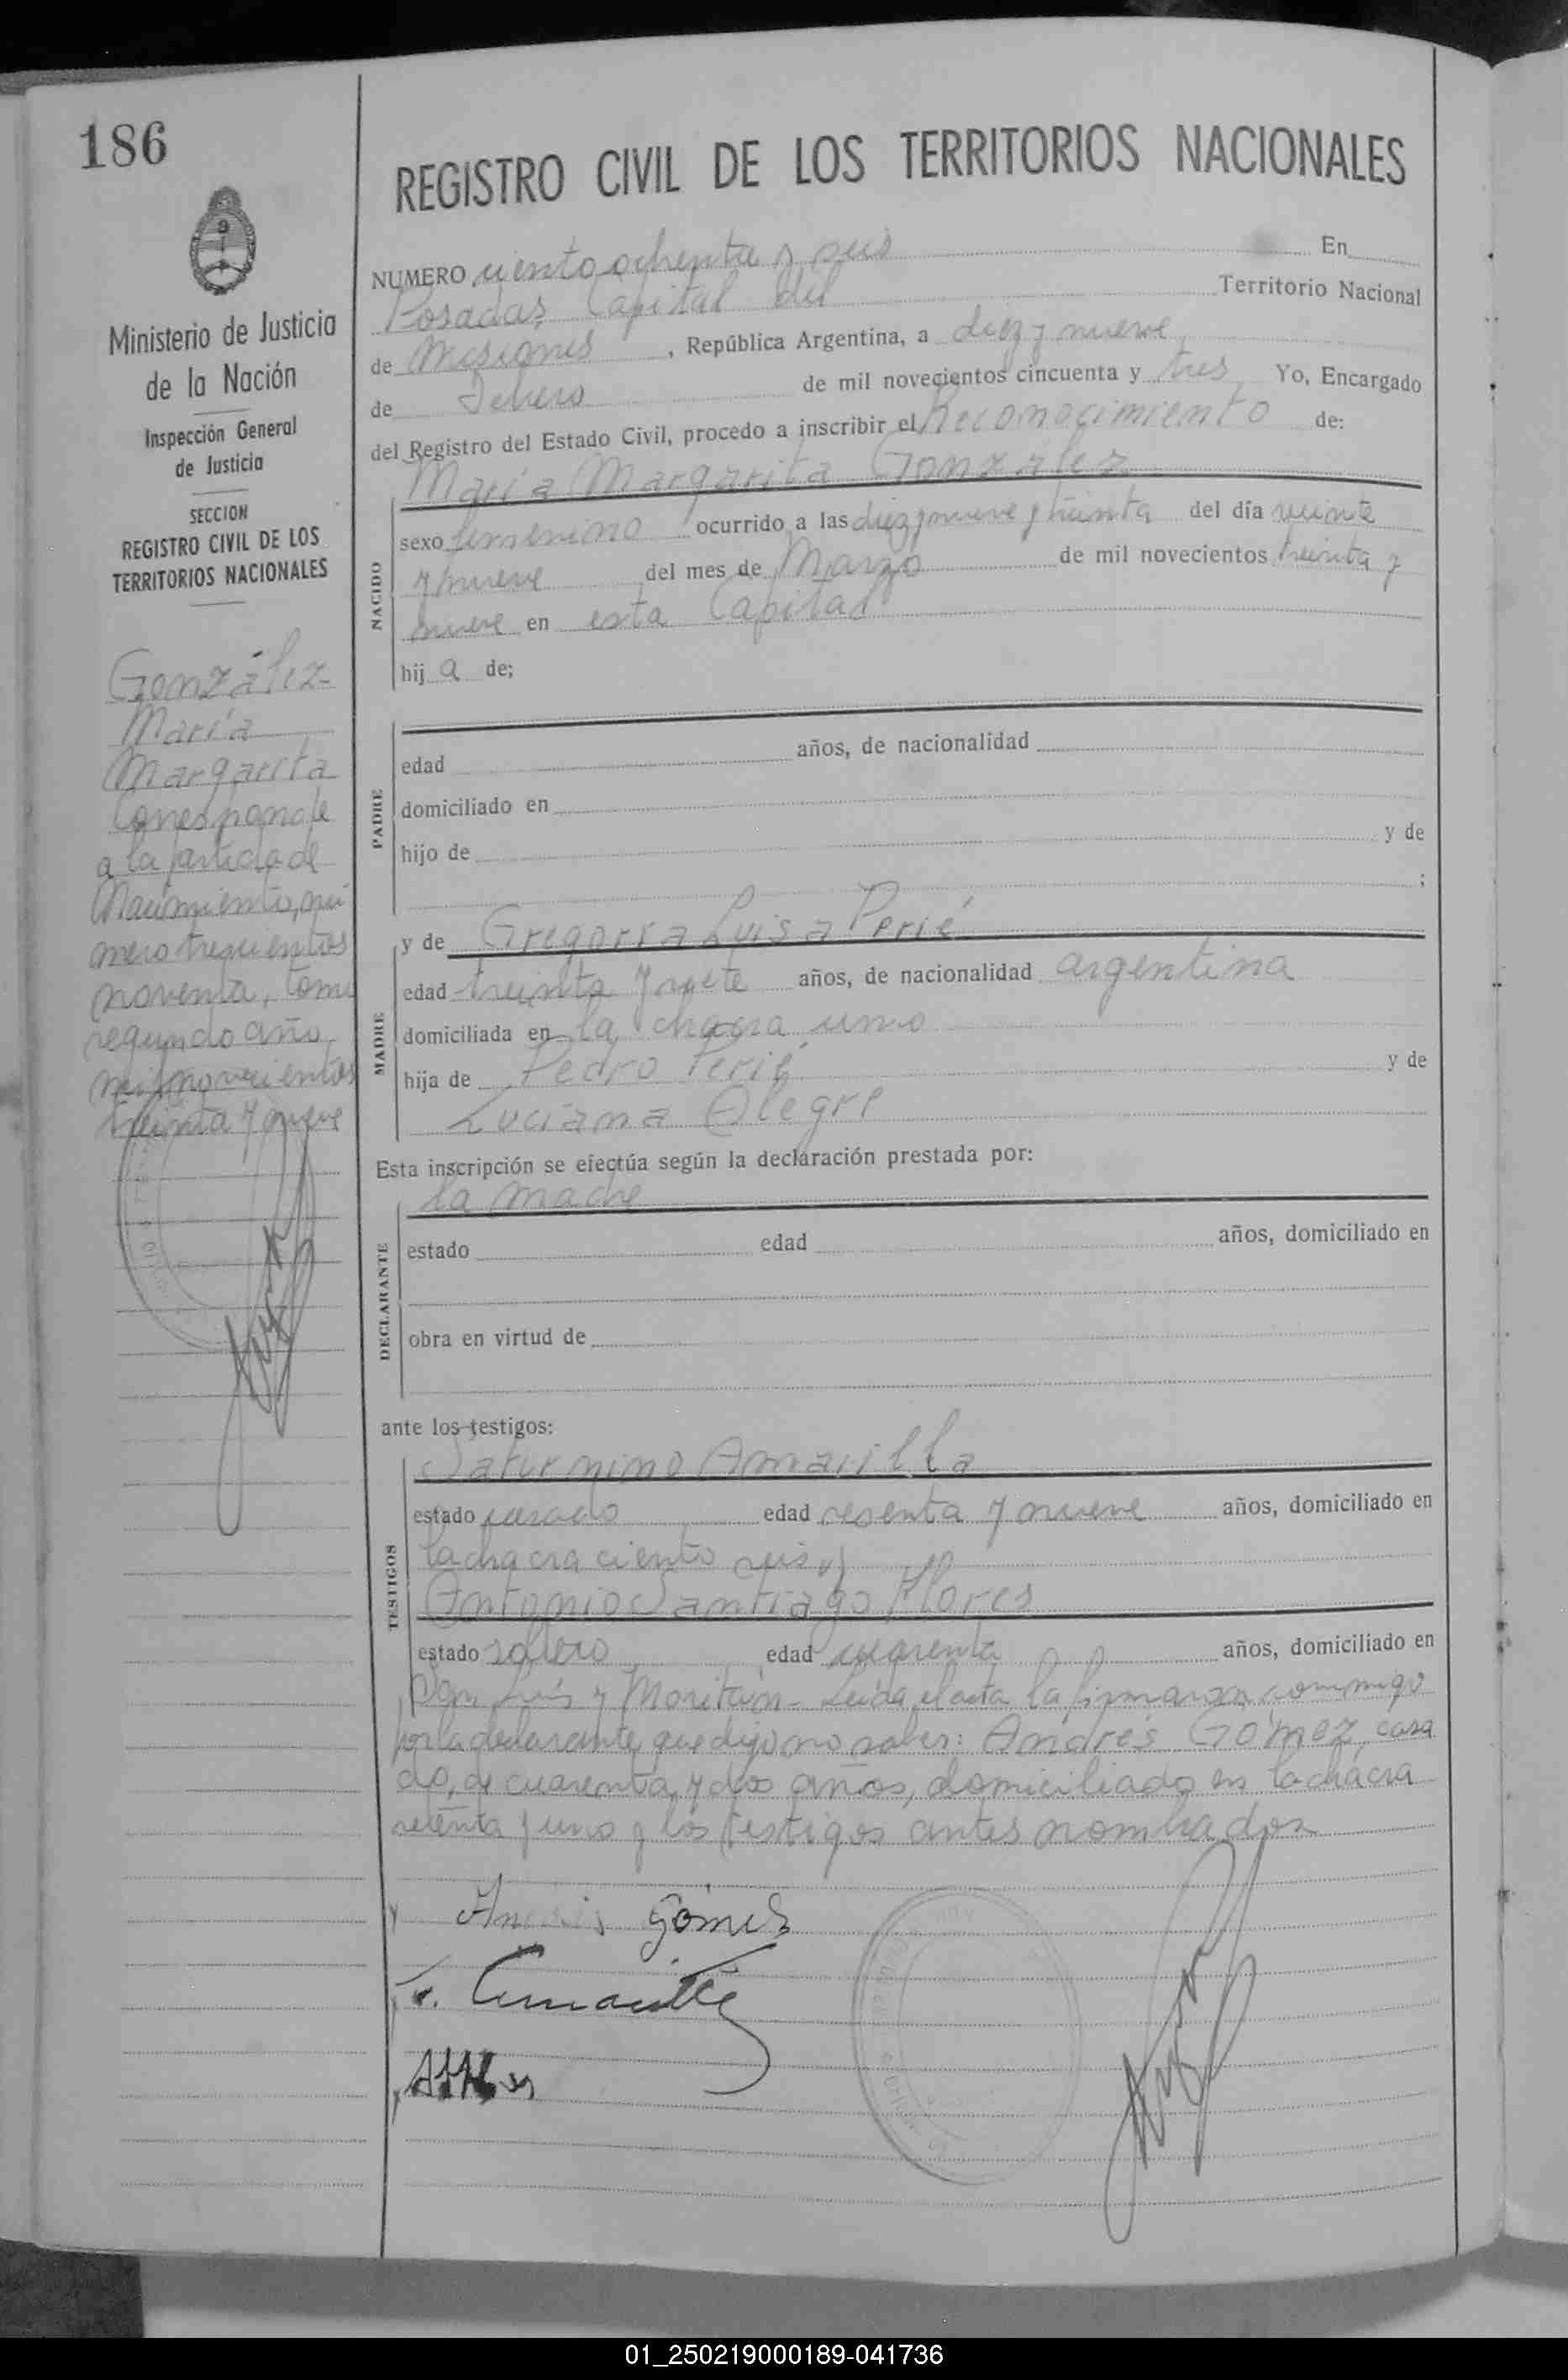 186
Ministerio de Justicia
de la Nación
Inspección General
de Justicia
SECCION
REGISTRO CIVIL DE LOS
TERRITORIOS NACIONALES
González
María
Margarita
Corresponde
a la partida de
Nacimiento, nú
mero trescientos
noventa, tomo
segundo año
mil novecientos
treinta y nueve
REGISTRO CIVIL DE LOS TERRITORIOS NACIONALES
NUMERO ciento ochenta y seis En
Posadas, Capital del Territorio Nacional
de Misiones, República Argentina, a diez y nueve
de Febrero de mil novecientos cincuenta y tres Yo, Encargado
del Registro del Estado Civil, procedo a inscribir el Reconocimiento de:
María Margarita González
NACIDO
sexo femenino ocurrido a las diez y nueve y treinta del día veinte
y nueve del mes de Marzo de mil novecientos treinta y
nueve en esta Capital
hij a de;
PADRE
edad años, de nacionalidad
domiciliado en
hijo de y de
;
MADRE
y de Gregoria Luisa Perié
edad treinta y siete años, de nacionalidad argentina
domiciliada en la chacra uno
hija de Pedro Perié y de
Luciana Alegre
Esta inscripción se efectúa según la declaración prestada por:
la madre
DECLARANTE
estado edad años, domiciliado en
obra en virtud de
ante los testigos:
TESTIGOS
Saturnino Amarilla
estado casado edad sesenta y nueve años, domiciliado en
la chacra ciento seis y
Antonio Santiago Flores
estado soltero edad cuarenta años, domiciliado en
San Luis y Moritán - Leida el acta la firmaron conmigo
por la declarante que dijo no saber: Andrés Gómez, casa
do, de cuarenta y dos años, domiciliado en la chacra
setenta y uno y los testigos antes nombrados
Andrés Gómez
S. Amarilla
01_250219000189-041736